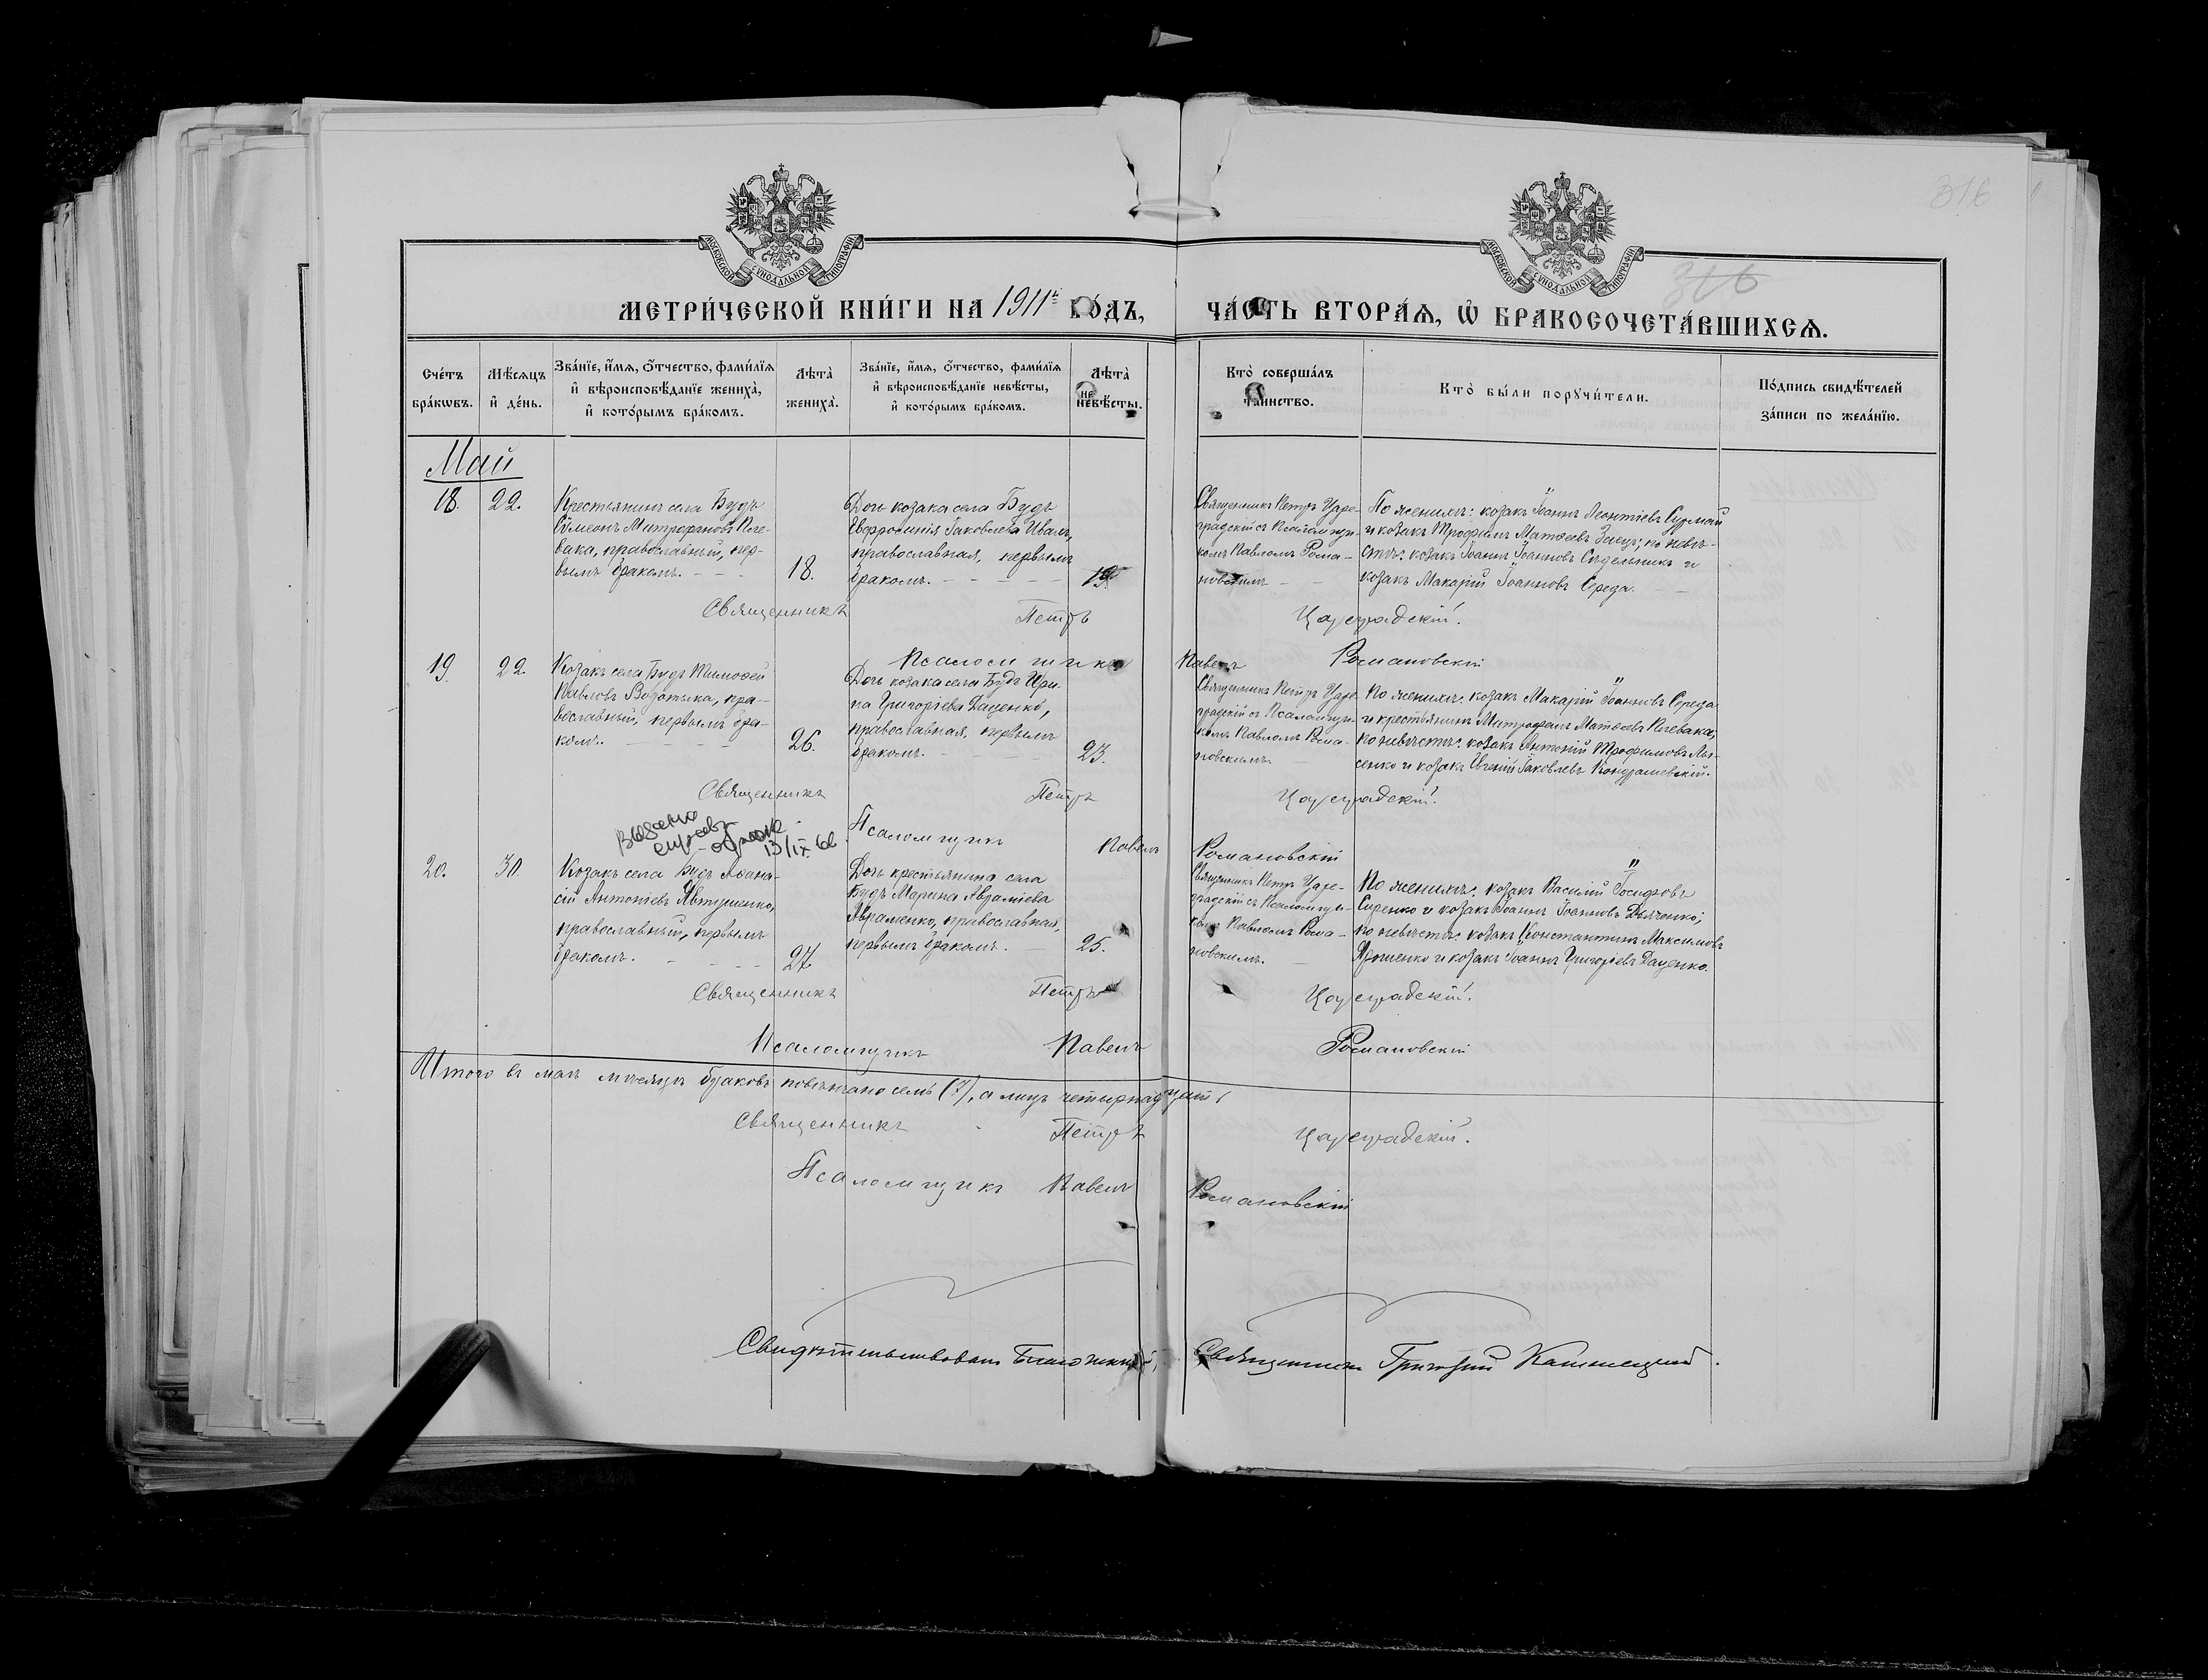 316
МОСКОВСКОЙ СѴНОДАЛЬНОЙ ТИПОГРАФІИ
МОСКОВСКОЙ СѴНОДАЛЬНОЙ ТИПОГРАФІИ
316
МЕТРИ́ЧЕСКОЙ КНИ́ГИ НА 1911й ГО́ДЪ,
ЧА́СТЬ ВТОРА́Я, Ѡ БРАКОСОЧЕТА́ВШИХСЯ.
Сче́тъ бра́кѡвъ.
Мѣ́сяцъ и де́нь.
Зва́нїе, и́мя, о́тчество, фами́лїя и вѣроисповѣ́данїе жениха̀, и кото́рымъ бра́комъ.
Лѣ́та жениха̀.
Зва́нїе, и́мя, о́тчество, фами́лїя и вѣроисповѣ́данїе невѣ́сты, и кото́рымъ бра́комъ.
Лѣ́та невѣ́сты.
Кто̀ соверша́лъ та́инство.
Кто̀ бы́ли порꙋчи́тели.
По́дпись свидѣ́телей за́писи по жела́нїю.
Май
18. 22.
Крестьянинъ села Будъ
Сѵмеонъ Митрофановъ Пле-
вака, православный, пер-
вымъ бракомъ.
18.
Дочь козака села Будъ
Евфросинія Іаковлева Иваль,
православная, первымъ
бракомъ.
19.
Священникъ Петръ Царе-
градскій съ Псаломщи-
комъ Павломъ Рома-
новскимъ
По женихѣ: козакъ Іоаннъ Леонтіевъ Сурмай
и козакъ Трофимъ Матѳеевъ Заецъ; по невѣ-
стѣ: козакъ Іоаннъ Іоанновъ Сѣдельникъ и
козакъ Макарій Іоанновъ Середа.
Священникъ Петръ Цареградскій.
Псаломщикъ Павелъ Романовскій
19. 22.
Козакъ села Будъ Тимоѳей
Павловъ Водотыка, пра-
вославный, первымъ бра-
комъ.
26.
Дочь козака села Будъ Ири-
на Григоріева Даценко,
православная, первымъ
бракомъ.
23.
Священникъ Петръ Царе-
градскій съ Псаломщи-
комъ Павломъ Рома-
новскимъ.
По женихѣ: козакъ Макарій Іоанновъ Середа
и крестьянинъ Митрофанъ Матѳеевъ Плевака;
по невѣстѣ: козакъ Антоній Трофимовъ Лы-
сенко и козакъ Евгеній Іаковлевъ Кондрашевскій.
Священникъ Петръ Цареградскій.
Выдана
13/IX 66
Псаломщикъ Павелъ Романовскій
20. 30.
Козакъ села Будъ Аѳана-
сій Антоніевъ Явтушенко,
православный, первымъ
бракомъ.
27
Дочь крестьянина села
Будъ Марина Авраміева
Авраменко, православная,
первымъ бракомъ.
25.
Священникъ Петръ Царе-
градскій съ Псаломщи-
комъ Павломъ Рома-
новскимъ.
По женихѣ: козакъ Василій Іосифовъ
Сиренко и козакъ Іоаннъ Іоанновъ Дьяченко;
по невѣстѣ: козакъ Константинъ Максимовъ
Ярошенко и козакъ Іоаннъ Григоріевъ Даценко.
Священникъ Петръ Цареградскій.
Псаломщикъ Павелъ Романовскій
Итого въ маѣ мѣсяцѣ браковъ повѣнчано семь (7), а лицъ четырнадцать
Священникъ Петръ Цареградскій.
Псаломщикъ Павелъ Романовскій
Свидѣтельствовалъ Благочинный, Священникъ Григорій